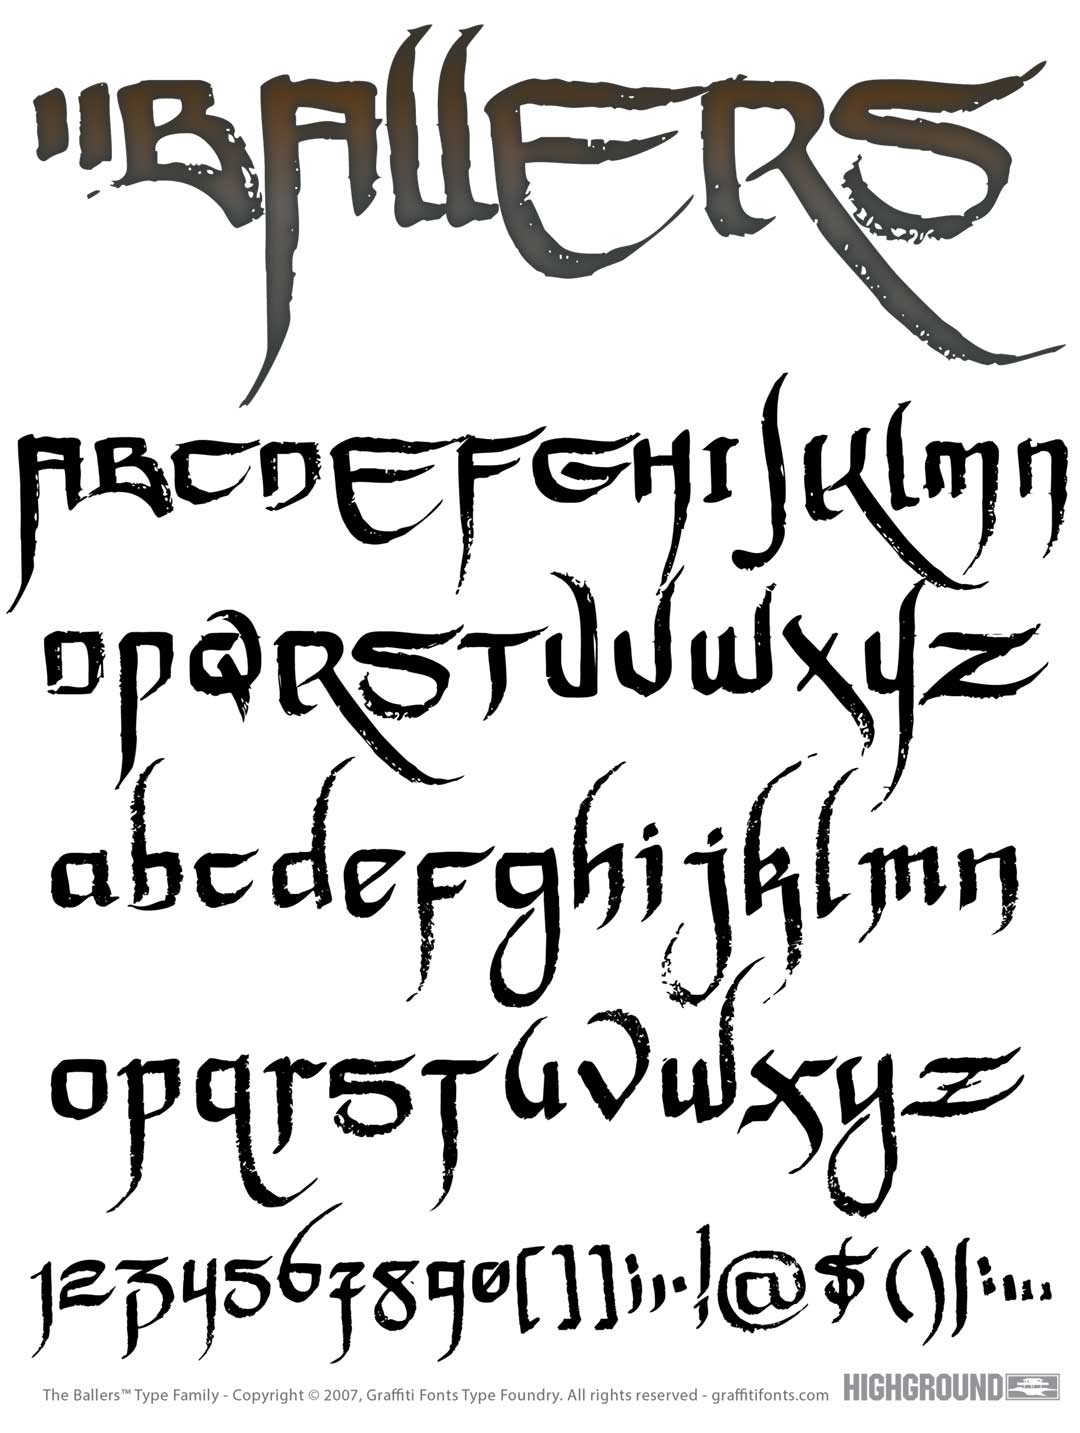 "Ballers
ABCDEFGHIJKLMN
OPQRSTUVWXYZ
abcdefghijklmn
opqrstuvwxyz
1234567890[]];,.!@$()/:...
The Ballers™ Type Family - Copyright © 2007, Graffiti Fonts Type Foundry. All rights reserved - graffitifonts.com
HIGHGROUND